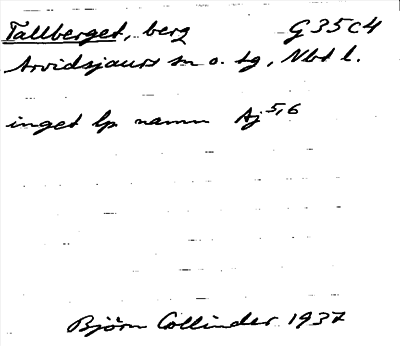 Tallberget, berg G35c4
Arvidsjaurs sn o. tg, Nbt l.
inget lp namn Aj 5,6
Björn Collinder 1937